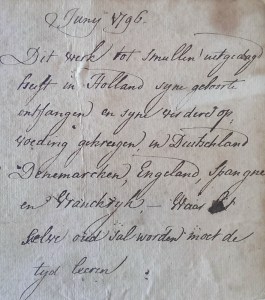 2 Juny 1796.
Dit werk tot smullen uitgedagd
heeft in Holland syne geboorte
ontfangen en syne verdere op,
voeding gekreegen in Deutschland
Denemarcken, Engeland, Spangne
en Vranckryk — Waar het
selve oud sal worden moet de
tyd leeren